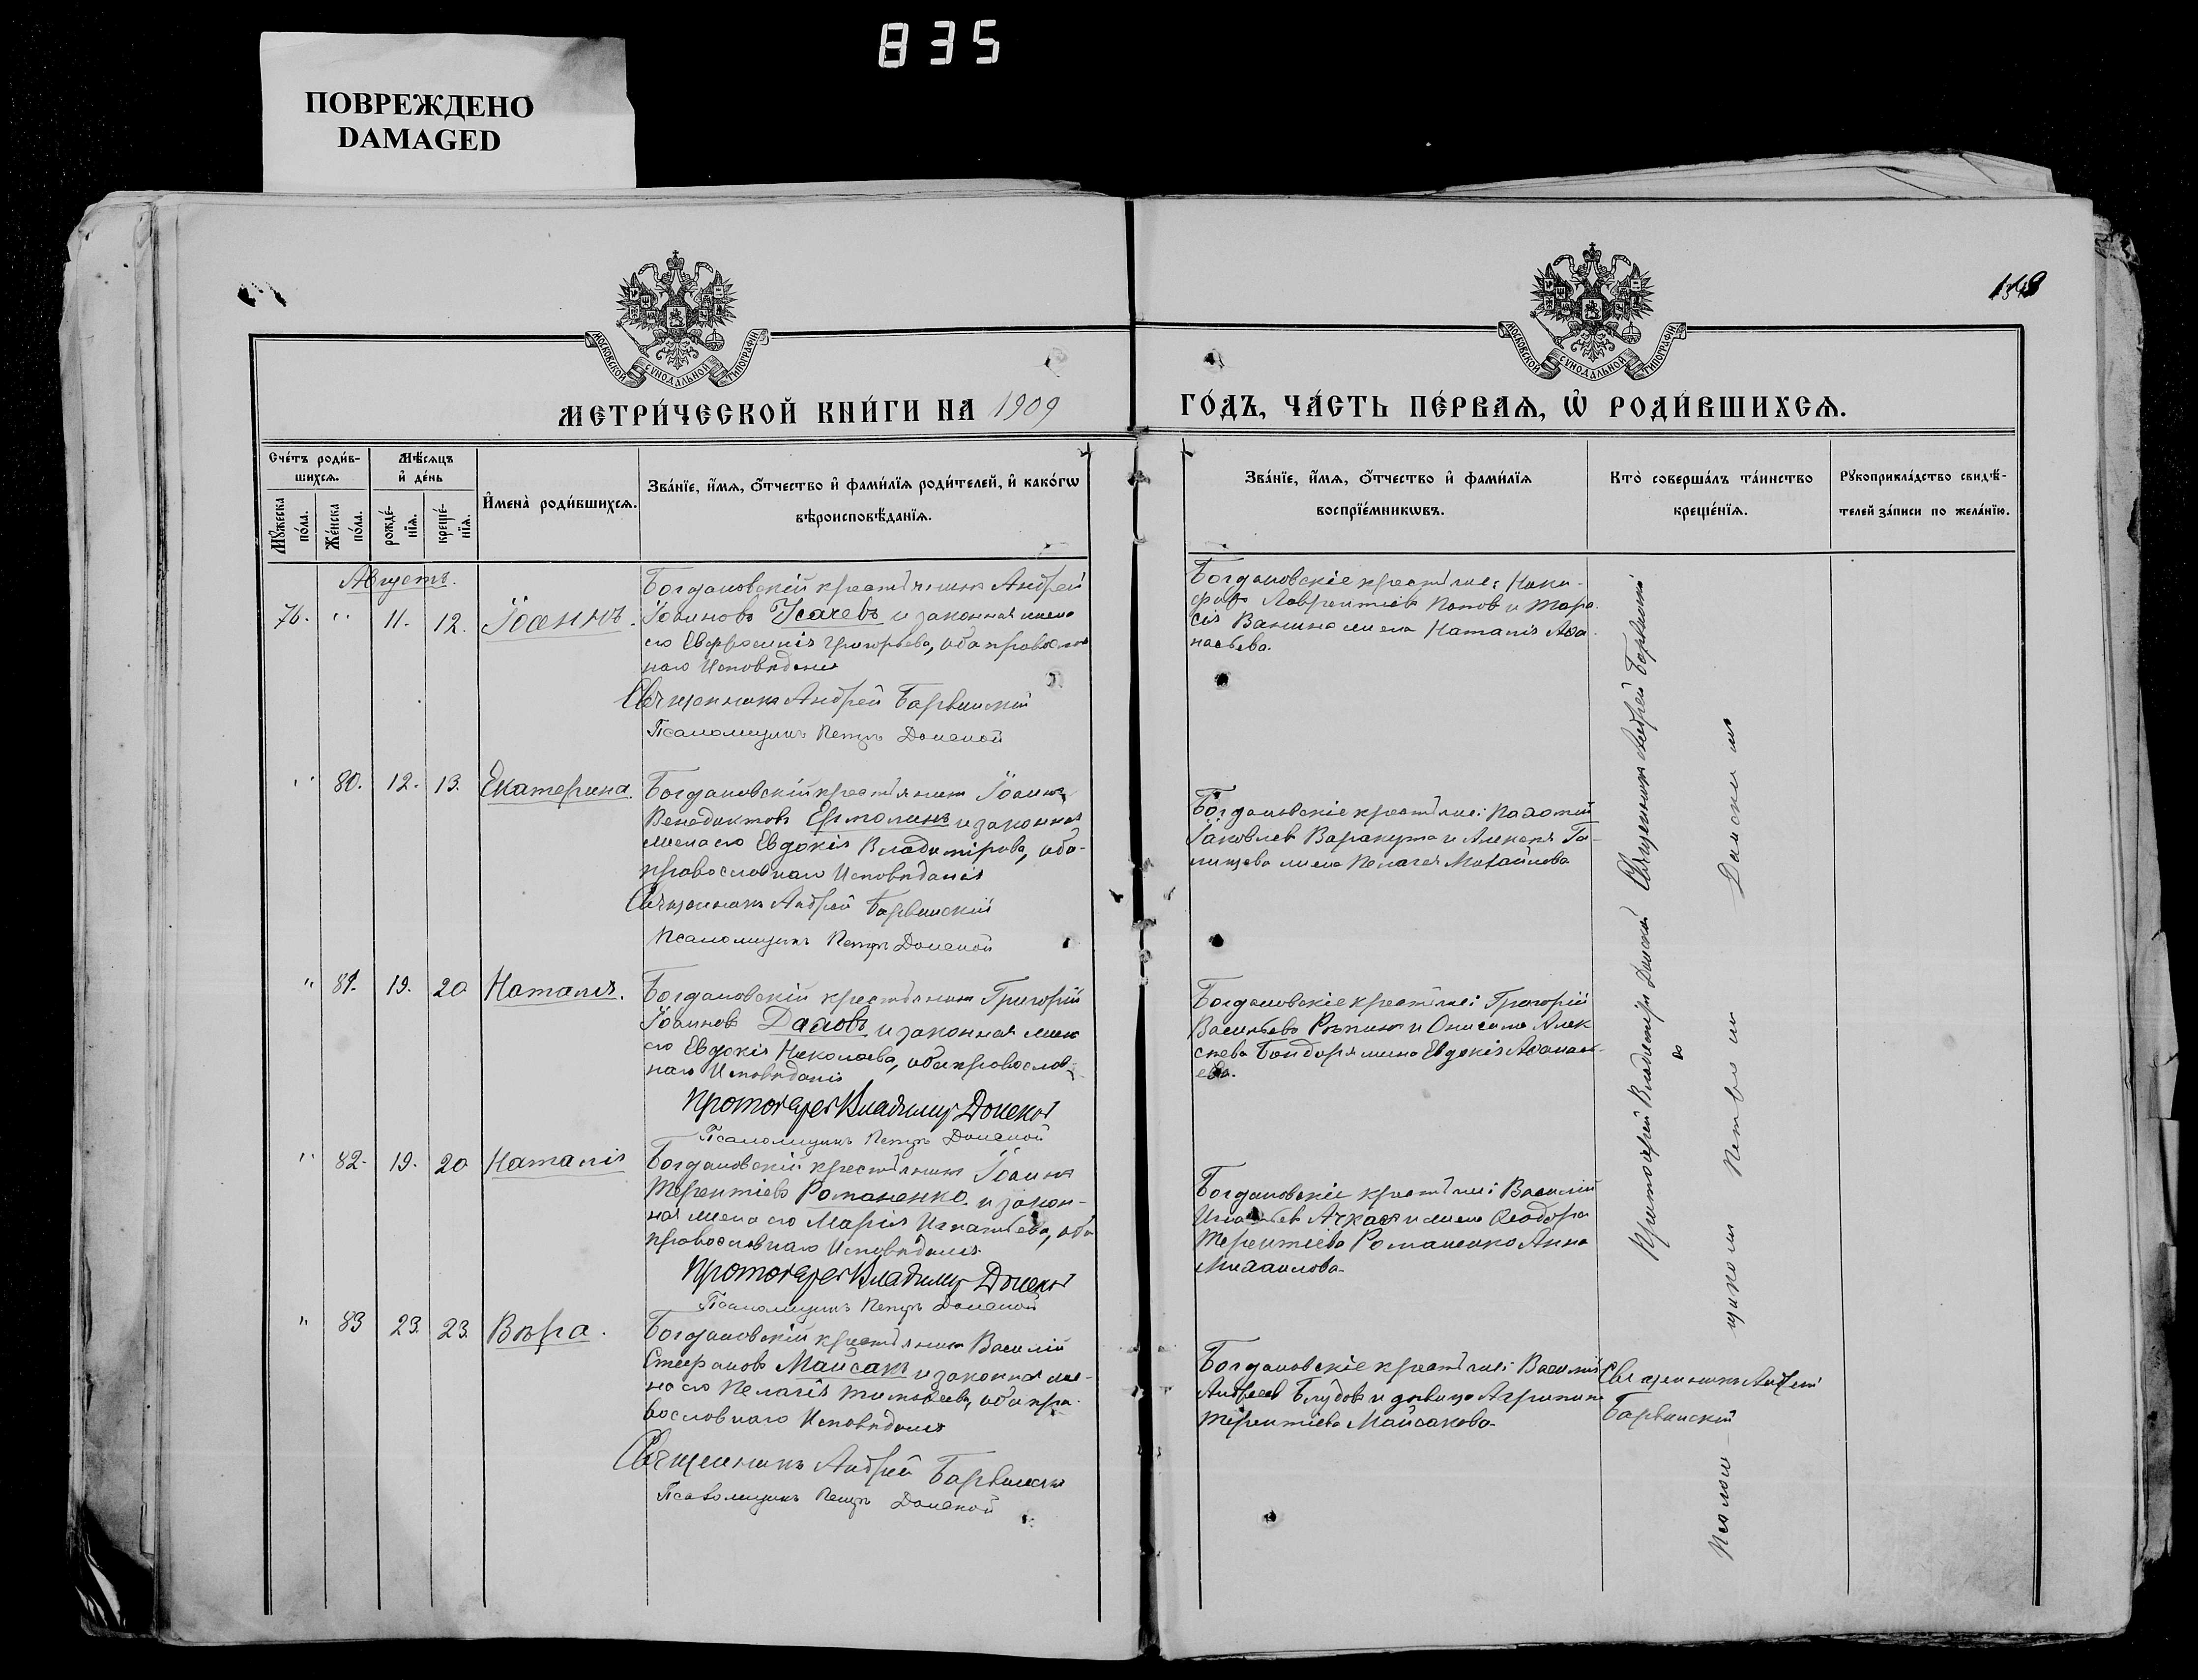 835
ПОВРЕЖДЕНО
DAMAGED
МОСКОВСКОЙ СѴНОДАЛЬНОЙ ТИПОГРАФІИ
МОСКОВСКОЙ СѴНОДАЛЬНОЙ ТИПОГРАФІИ
МЕТРИ́ЧЕСКОЙ КНИ́ГИ НА 1909
ГО́ДЪ, ЧА́СТЬ ПЕ́РВАѦ, Ѽ РОДИ́ВШИХСѦ.
Сче́тъ роди́в-
шихсѧ.
Мꙋ́жеска по́ла.
Же́нска по́ла.
Мѣ́сѧцъ
и҆ де́нь
рожде́-
нїѧ.
креще́-
нїѧ.
И҆мена̀ роди́вшихсѧ.
Зва́нїе, и҆́мѧ, ѻ҆́тчество и҆ фами́лїѧ роди́телей, и҆ како́гѡ
вѣроисповѣ́данїѧ.
Зва́нїе, и҆́мѧ, ѻ҆́тчество и҆ фами́лїѧ
воспрїе́мникѡвъ.
Кто̀ соверша́лъ та́инство
креще́нїѧ.
Рꙋкоприкла́дство свидѣ́-
телей за́писи по жела́нїю.
Августъ.
76. " 11. 12. Іоаннъ.
Богдановскій крестьянинъ Андрей
Іоанновъ Усачевъ и законная жена
его Евфросинія Григорьева, оба православ
наго Исповѣданія
Священникъ Андрей Барвинскій
Псаломщикъ Петръ Донской
Богдановскіе крестьяне: Ники-
форъ Лаврентіевъ Поповъ и Тара
сія Ванина жена Наталія Аѳа
насьева.
" 80. 12. 13. Екатерина.
Богдановскій крестьянинъ Іоаннъ
Венедиктовъ Ермолинъ и законная
жена его Евдокія Владимірова, оба
православнаго Исповѣданія
Священникъ Андрей Барвинскій
Псаломщикъ Петръ Донской
Богдановскіе крестьяне:
Іаковлевъ Варакута и
жена Пелагея Михайлова
" 81. 19. 20 Наталія.
Богдановскій крестьянинъ Григорій
Іоанновъ и законная жена
его Евдокія Николаева, оба православ
наго Исповѣданія
Протоіерей Владиміръ Донской
Псаломщикъ Петръ Донской
Богдановскіе крестьяне: Григорій
Васильевъ Рѣпинъ и Онисима Алек
сѣева Бондаря жена Евдокія Аѳанась
ева.
" 82. 19. 20 Наталія
Богдановскій крестьянинъ Іоаннъ
Терентіевъ Романенко и закон-
ная жена его Марія Игнатьева, оба
православнаго Исповѣданія
Протоіерей Владиміръ Донской
Псаломщикъ Петръ Донской
Богдановскіе крестьяне: Василій
Игнатьевъ и жена Ѳеодора
Терентіева Романенко Анна
Михаилова
" 83 23. 23. Вѣра.
Богдановскій крестьянинъ Василій
Стефановъ Майсакъ и законная же-
на его Пелагія Тимоѳеева, оба пра
вославнаго Исповѣданія
Священникъ Андрей Барвинскій
Псаломщикъ Петръ Донской
Богдановскіе крестьяне: Василій
Андреевъ Блудовъ и дѣвица Агрипина
Терентіева Майсакова
Священникъ Андрей
Барвинскій
Протоіерей Владиміръ Донской Священникъ Андрей Барвинскій
Псаломщикомъ Петромъ Донскимъ